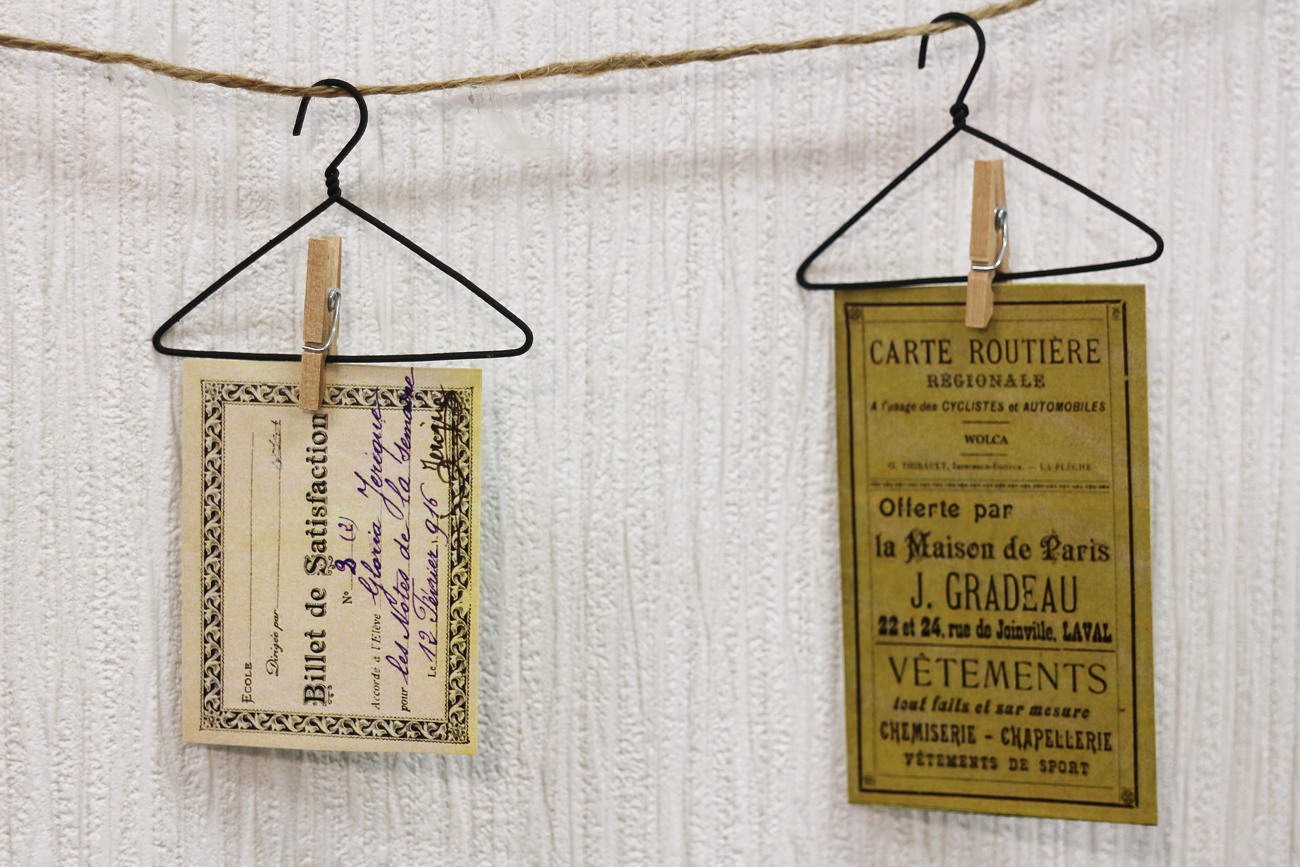 ECOLE
Dirigée par
Billet de Satisfaction
N° 3 (2)
Accordé à l'Elève Gloria Jerique
pour les Notes de la semaine
Le 12 Février 916
CARTE ROUTIÈRE
RÉGIONALE
A l'usage des CYCLISTES et AUTOMOBILES
WOLCA
G. THIBAULT, Imprimeur-Éditeur. — LA FLÈCHE
Offerte par
la Maison de Paris
J. GRADEAU
22 et 24, rue de Joinville, LAVAL
VÊTEMENTS
tout faits et sur mesure
CHEMISERIE - CHAPELLERIE
VÊTEMENTS DE SPORT